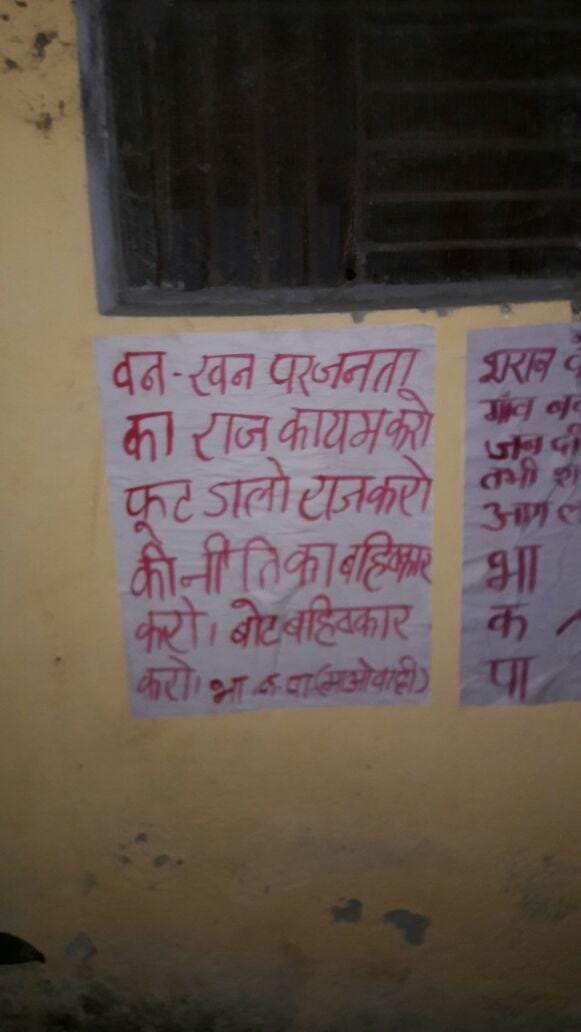 वन-खन पर जनता
का राज कायम करो
फूट डालो राज करो
की नीति का बहिष्कार
करो। बोट बहिष्कार
करो। भा.क.पा(माओवादी)
शराब
गाँव
जब
तभी
आग
भा
क
पा